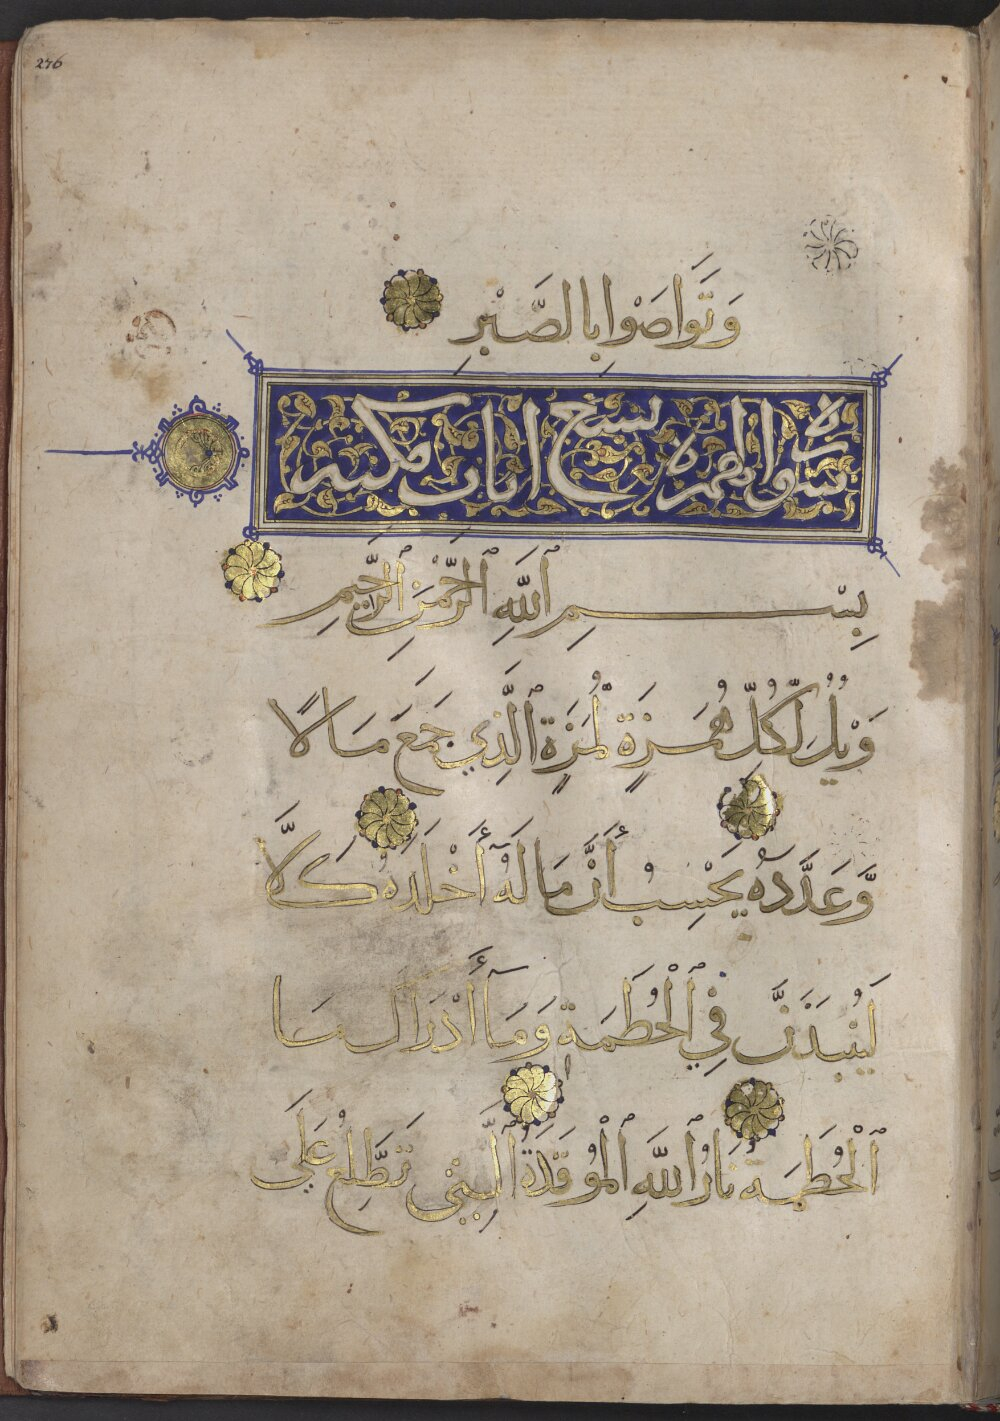 276
وَتَوَاصَوْا بِالصَّبْرِ
سورة الهمزة تسع ايات مكية
بِسْمِ ٱللَّهِ ٱلرَّحْمَٰنِ ٱلرَّحِيمِ
وَيْلٌ لِّكُلِّ هُمَزَةٍ لُّمَزَةٍ ٱلَّذِي جَمَعَ مَالًا
وَّعَدَّدَهُ يَحْسِبُ أَنَّ مَالَهُٓ أَخْلَدَهُ كَلَّا
لَيُنۢبَذَنَّ فِي ٱلْحُطَمَةِ وَمَآ أَدْرَاكَ مَا
ٱلْحُطَمَةُ نَارُ ٱللَّهِ ٱلْمُوقَدَةُ ٱلَّتِي تَطَّلِعُ عَلَى